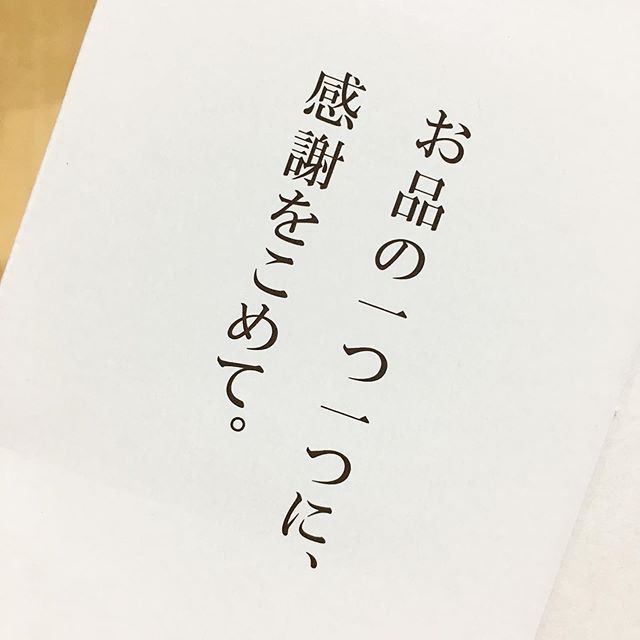 お品の一つ一つに、
感謝をこめて。